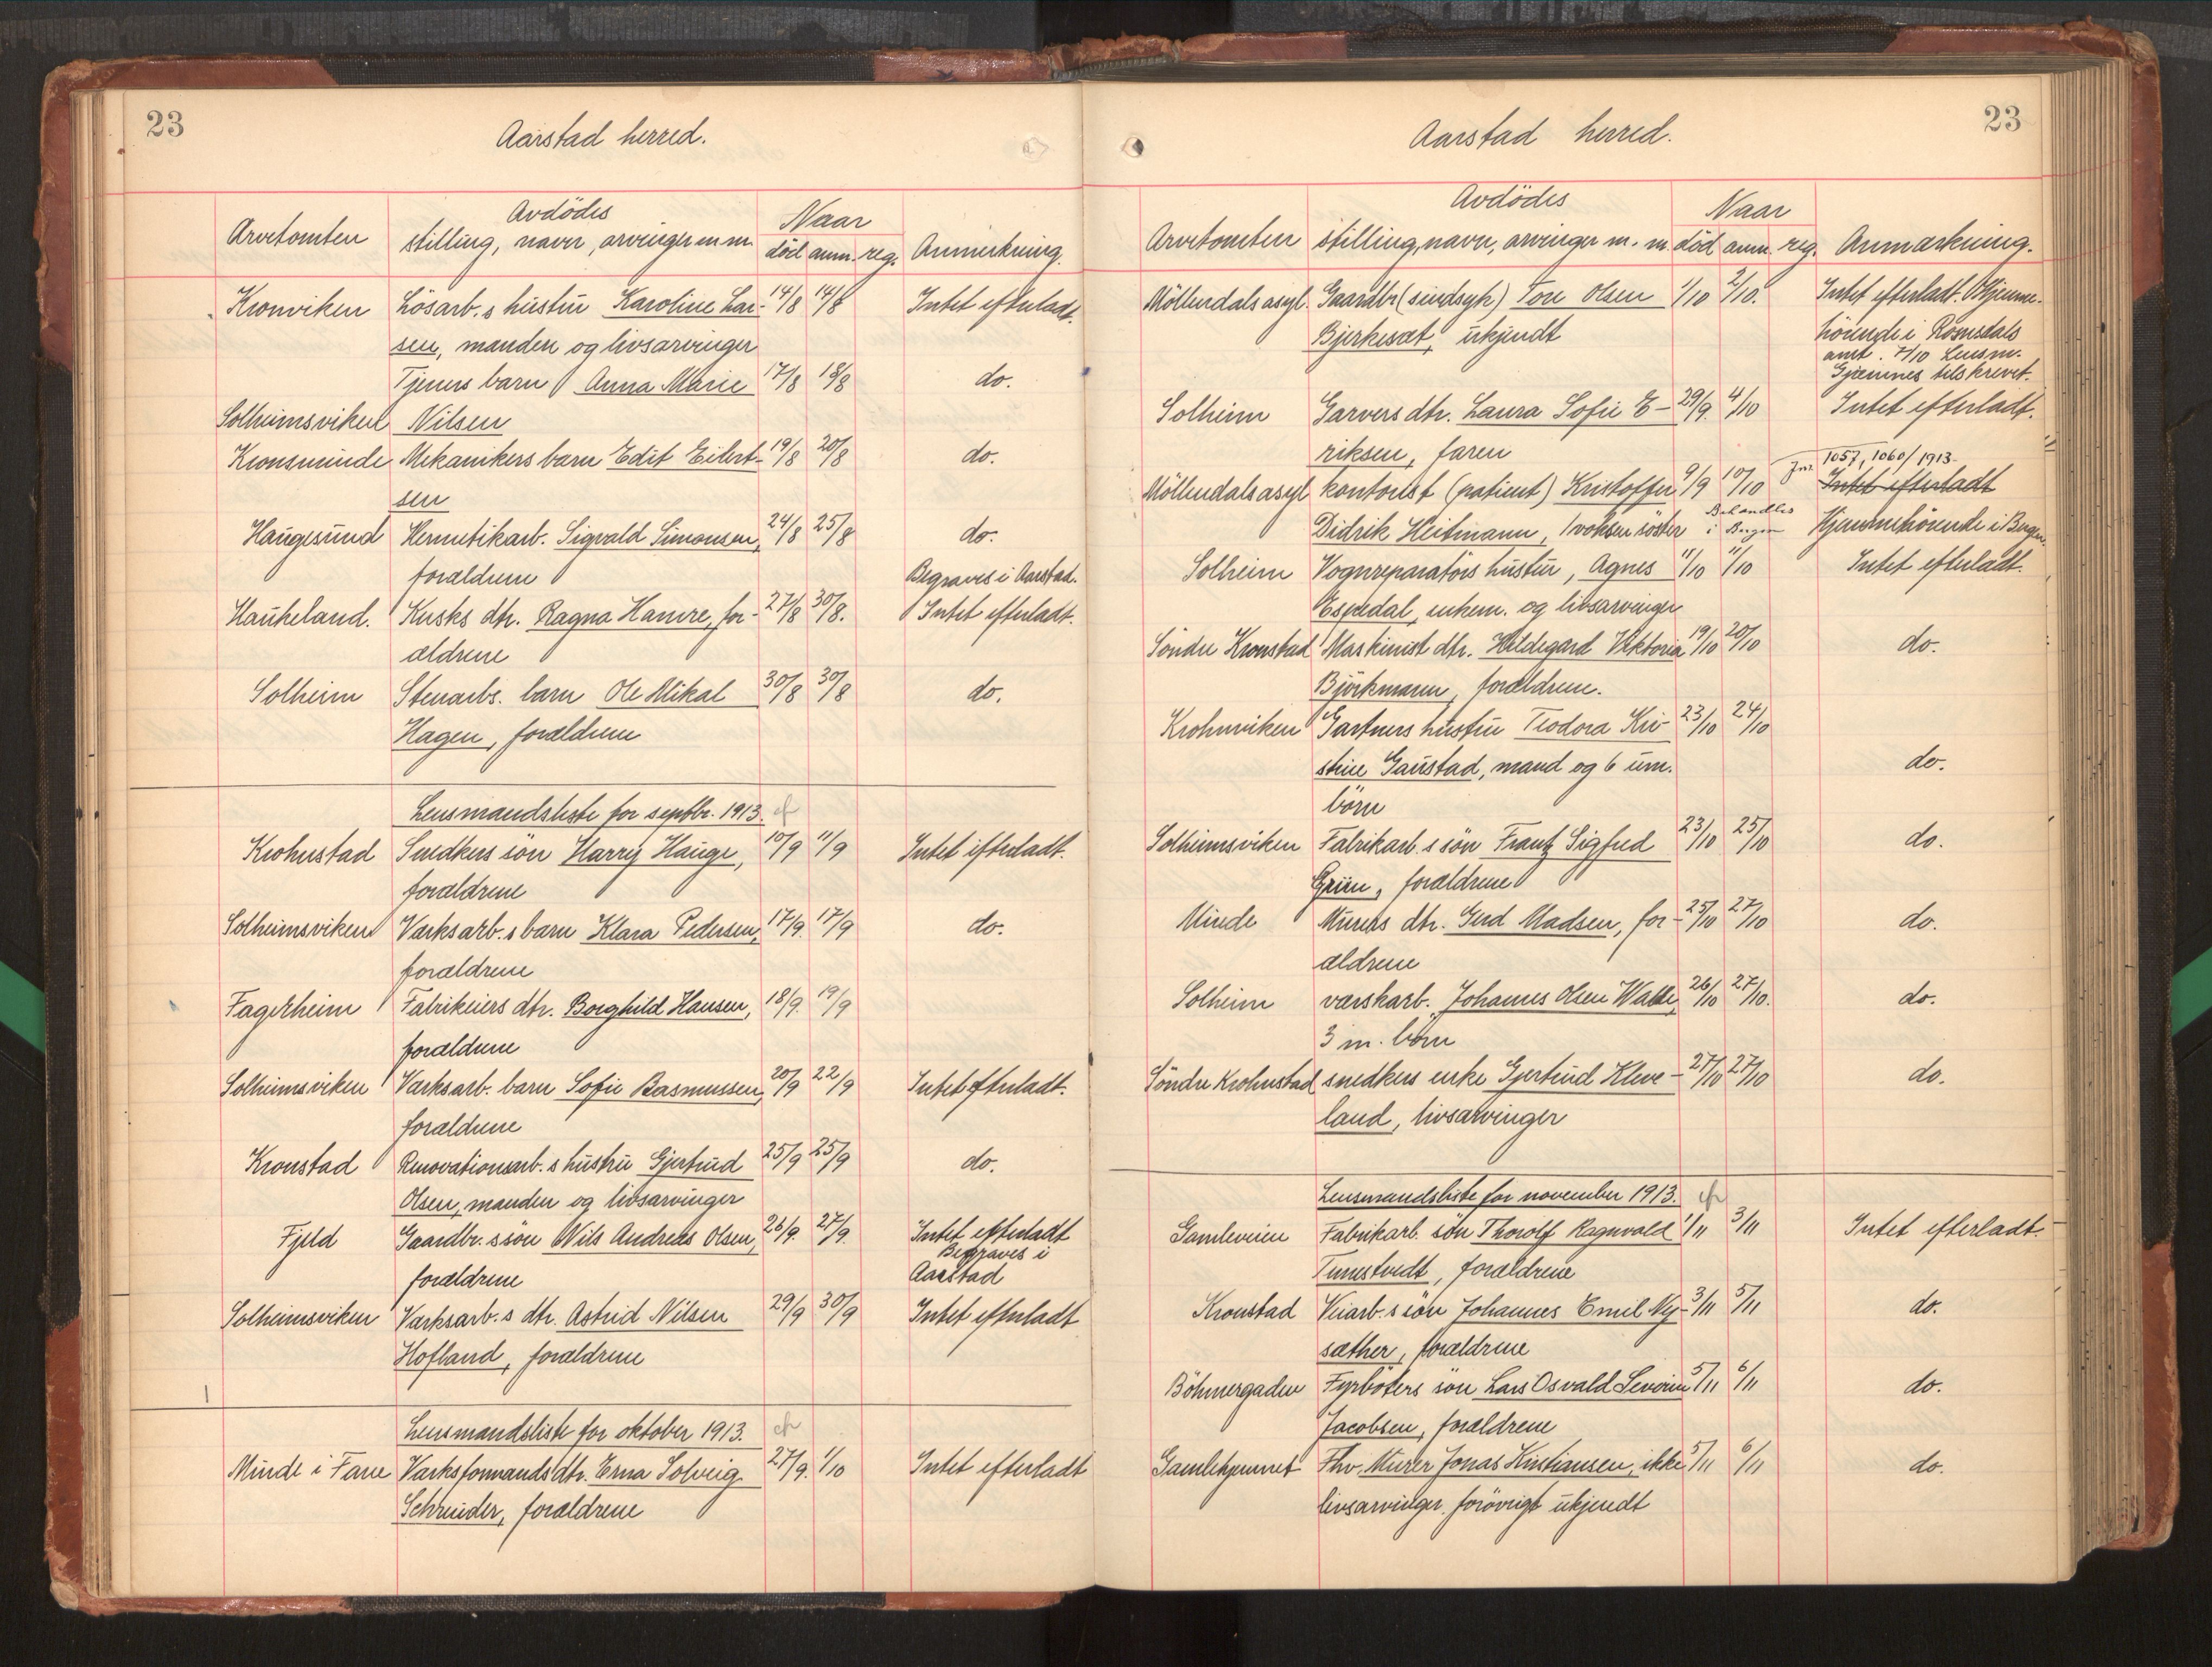 23
Aarstad herred.
Avdödes
Naar
Arvetomten stilling, navn, arvinger m m. död anm. reg. Anmerkning.
Kronviken Lösarb.s hustru Karoline Lar- 14/8 14/8 Intet efterladt.
sen, manden og livsarvinger
Tjeners barn Anna Marie 17/8 18/8 do.
Solheimsviken Nilsen
Kronsminde Mekanikers barn Edit Eilert- 19/8 20/8 do.
sen
Haugesund Hermetikarb. Sigvald Simonsen, 24/8 25/8 do.
forældrene Begraves i Aarstad.
Haukeland. Kusks dtr. Ragna Hamre, for- 27/8 30/8. Intet efterladt.
ældrene
Solheim Stenarbs. barn Ole Mikal 30/8 30/8 do.
Hagen, forældrene
Lensmandsliste for septbr. 1913.
Krohnstad Snedkers sön Harry Hauge, 10/9 11/9 Intet efterladt.
forældrene
Solheimsviken Værksarb.s barn Klara Pedersen, 17/9. 17/9 do.
forældrene
Fagerheim Fabrikeiers dtr. Borghild Hansen, 18/9. 19/9
forældrene
Solheimsviken Værksarb. barn Sofie Rasmussen, 20/9 22/9 Intet efterladt.
forældrene
Kronstad Renovationsarb.s hustru Gjertrud 25/9 25/9 do.
Olsen, manden og livsarvinger
Fjeld Gaardbr.s sön Nils Andreas Olsen, 26/9. 27/9. Intet efterladt
Begraves i
forældrene Aarstad
Solheimsviken Værksarb.s dtr. Astrid Nilsen 29/9 30/9 Intet efterladt
Hofland, forældrene
Lensmandsliste for oktober 1913.
Minde i Fane Værksformands dtr. Erna Solveig 27/9. 1/10 Intet efterladt
Schreuder, forældrene
23
Aarstad herred.
Avdödes
Naar
Arvetomten stilling, navn, arvinger m. m. död anm. reg. Anmærkning.
Möllendals asyl. Gaardbr (sindsyk) Tore Olsen 1/10 2/10. Intet efterladt. Hjemme-
Bjerkesæt, ukjendt hörende i Romsdals
amt. 7/10 Lensm.
Gjemnes tilskrevet.
Solheim Garvers dtr. Laura Sofie E- 29/9. 4/10 Intet efterladt.
riksen, faren
Jnr. 1057, 1060/1913.
Möllendals asyl kontorist (patient) Kristoffer 9/9 10/10 Intet efterladt
Didrik Heitmann, 1 voksen söster Behandles i Bergen Hjemmehörende i Bergen.
Solheim Vognreparatörs hustru, Agnes 11/10 11/10 Intet efterladt.
Espedal, enkem. og livsarvinger
Söndre Kronstad Maskinist dtr. Hildegard Viktoria 19/10 20/10 do.
Björkmann, forældrene.
Krohnviken Gartners hustru Teodora Kri- 23/10 24/10
stine Gaustad, mand og 6 um. do.
börn
Solheimsviken Fabrikarb.s sön Frantz Sigfred 23/10 25/10 do.
Grün, forældrene
Minde Murers dtr. Gerd Madsen, for- 25/10 27/10 do.
ældrene
Solheim værskarb. Johannes Olsen Walle, 26/10 27/10. do.
3 m. börn
Söndre Krohnstad snedkers enke Gjertrud Kleve- 27/10 27/10 do.
land, livsarvinger
Lensmandsliste for november 1913.
Gamleveien Fabrikarb. sön Thorolf Ragnvald 1/11 3/11 Intet efterladt.
Tunestvedt, forældrene
Kronstad Veiarb.s sön Johannes Emil Ny- 3/11 5/11 do.
sæther, forældrene
Böhmergaden Fyrböters sön Lars Osvald Severin 5/11 6/11 do.
Jacobsen, forældrene
Gamlehjemmet Fhv. Murer Jonas Kristiansen, ikke 5/11 6/11 do.
livsarvinger. forövrigt ukjendt